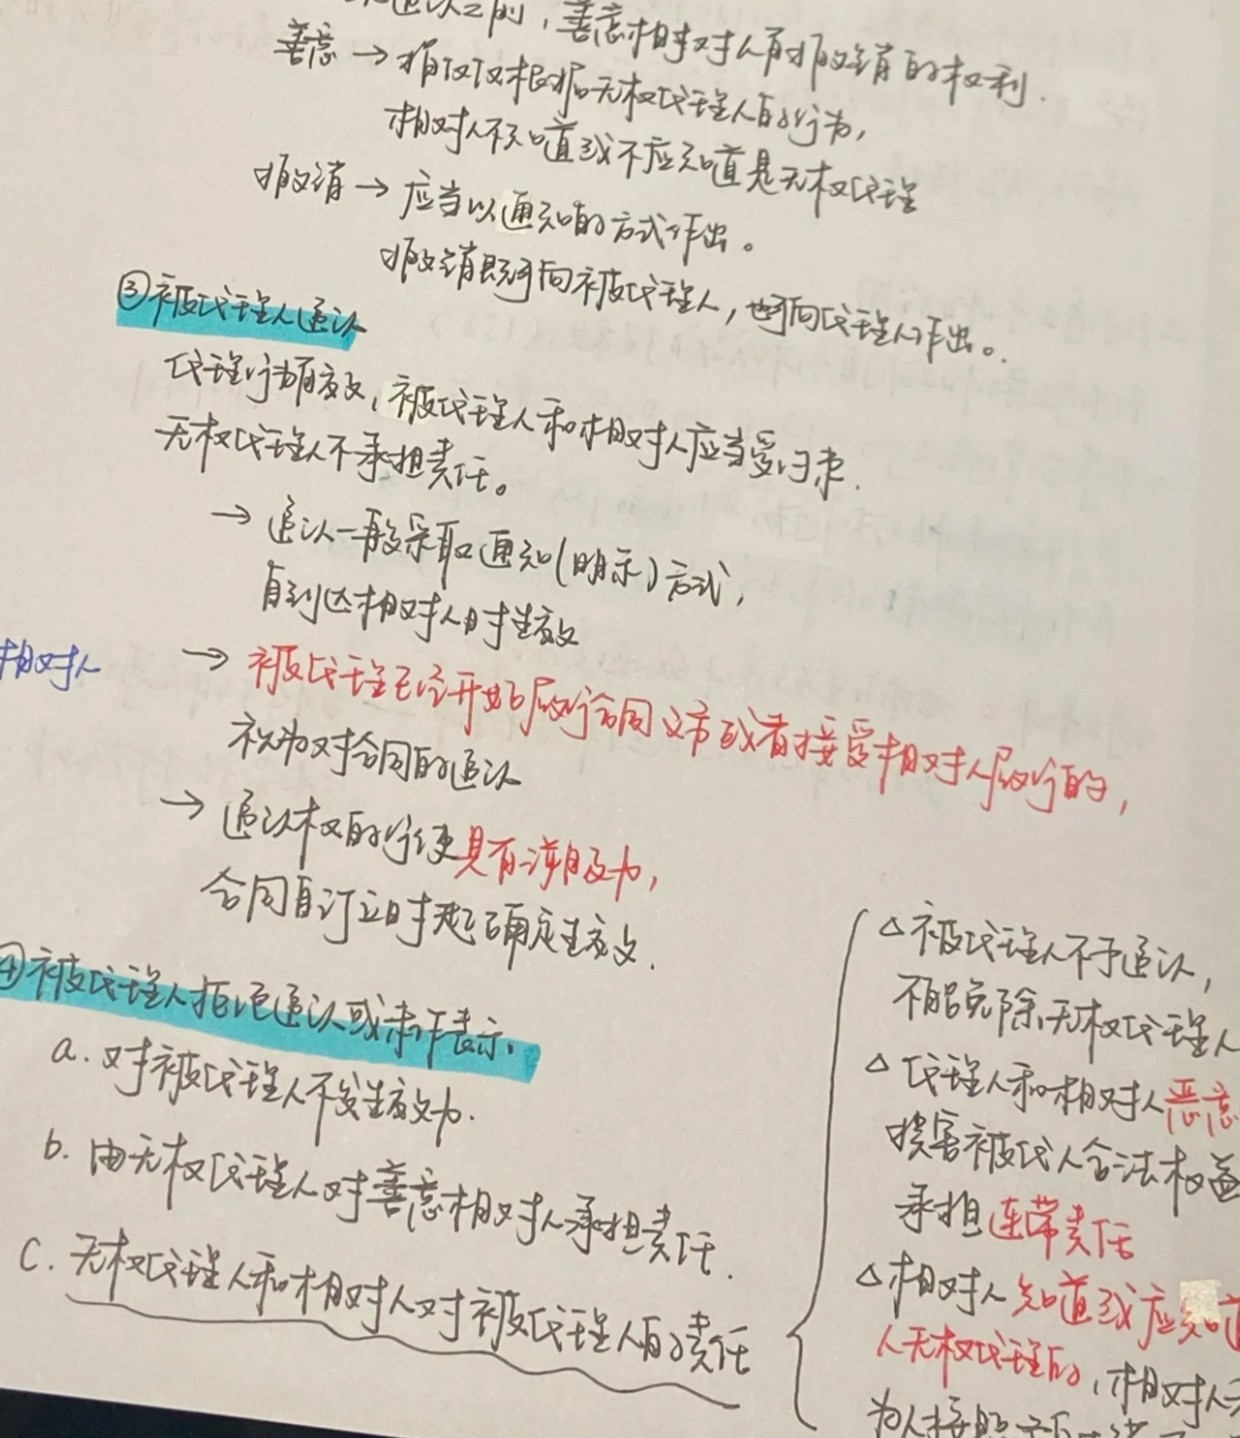 追认之前，善意相对人有撤销的权利.
善意 → 指仅仅根据无权代理人的行为，
相对人不知道或不应知道是无权代理
撤销 → 应当以通知的方式作出。
撤销既可向被代理人，也可向代理人作出。
③被代理人追认
代理行为有效，被代理人和相对人应当受约束.
无权代理人不承担责任。
→ 追认一般采取通知(明示)方式，
自到达相对人时生效
相对人
→ 被代理已经开始履行合同义务或者接受相对人履行的，
视为对合同的追认
→ 追认权的行使具有溯及力，
合同自订立时起确定生效.
④被代理人拒绝追认或未作表示.
a. 对被代理人不发生效力.
b. 由无权代理人对善意相对人承担责任.
c. 无权代理人和相对人对被代理人的责任
△被代理人不予追认，
不能免除无权代理人
△代理人和相对人恶意
损害被代人合法权益
承担连带责任
△相对人知道或应知道
人无权代理的，相对人
为人按照